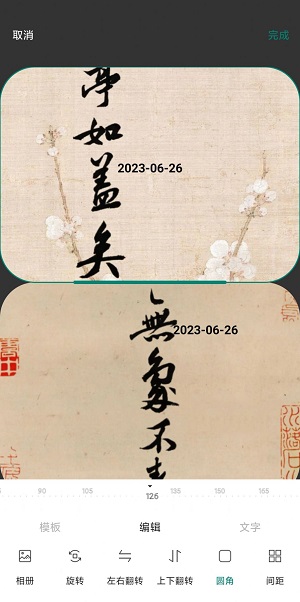 取消
完成
亭
如
盖
矣
2023-06-26
無
象
不
2023-06-26
90
105
126
135
150
165
模板
编辑
文字
相册
旋转
左右翻转
上下翻转
圆角
间距